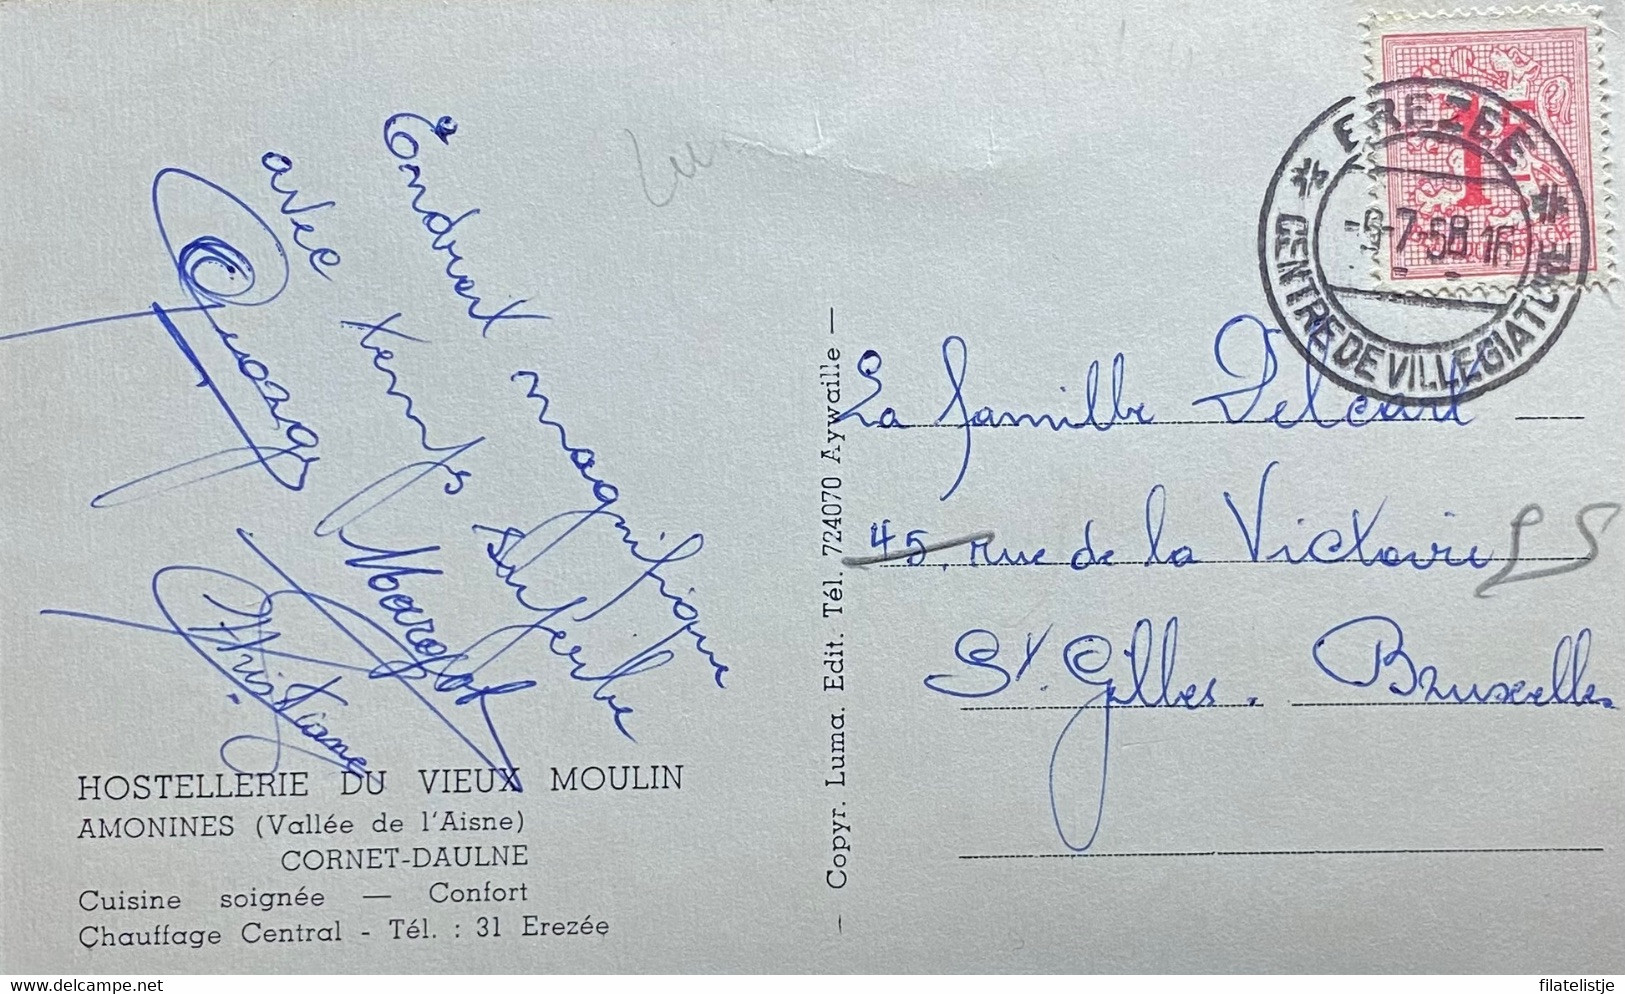 Endroit magnifique
avec temps superbe
Georges
Christiane
HOSTELLERIE DU VIEUX MOULIN
AMONINES (Vallée de l'Aisne)
CORNET-DAULNE
Cuisine soignée — Confort
Chauffage Central - Tél. : 31 Erezée
— Copyr. Luma. Edit. Tél. 724070 Aywaille —
EREZEE
-7-58 16
CENTRE DE VILLEGIATURE
1F
La famille Delcart
45, rue de la Victoire
St. Gilles. Bruxelles
filatelistje